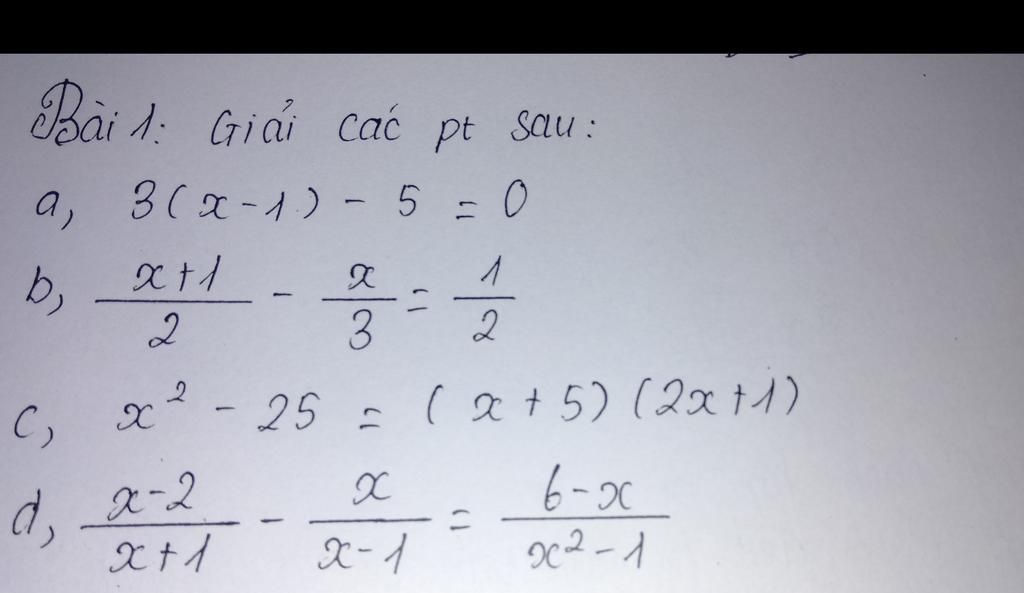 Bài 1: Giải các pt sau:
a, 3(x-1) - 5 = 0
b, \frac{x+1}{2} - \frac{x}{3} = \frac{1}{2}
c, x² - 25 = (x + 5)(2x+1)
d, \frac{x-2}{x+1} - \frac{x}{x-1} = \frac{6-x}{x²-1}